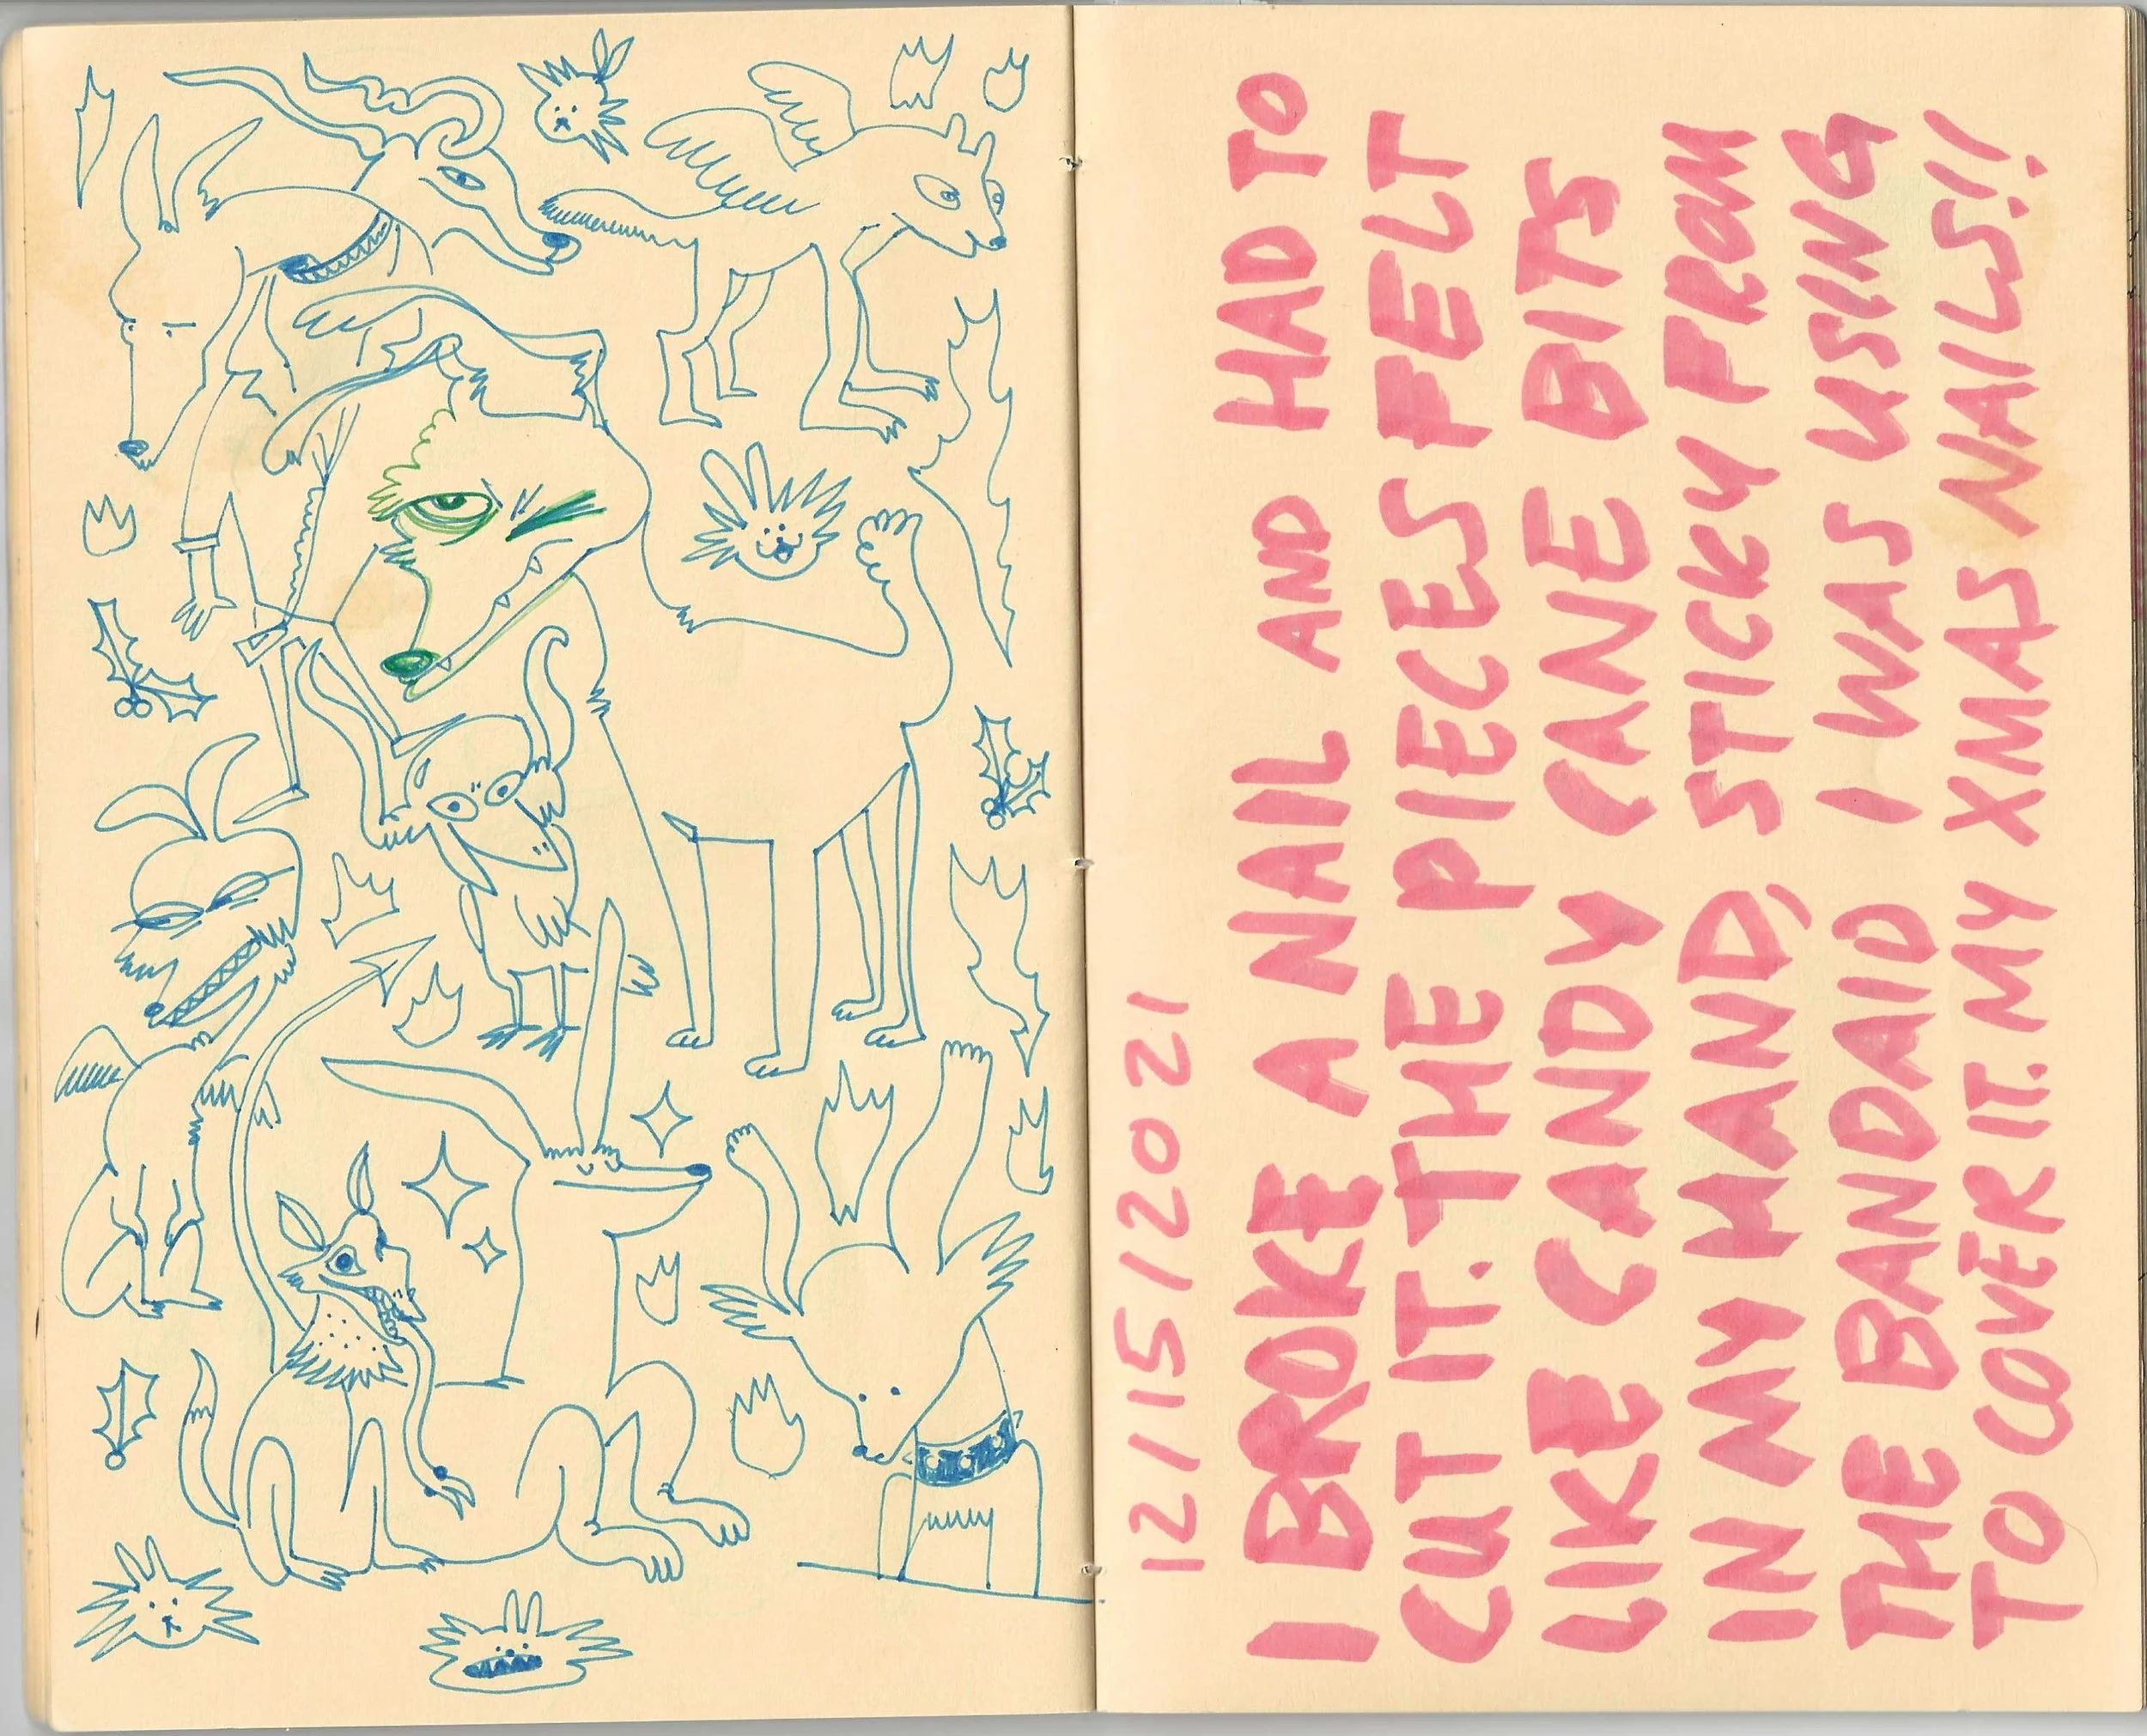 12/15/2021
I BROKE A NAIL AND HAD TO
CUT IT. THE PIECES FELT
LIKE CANDY CANE BITS
IN MY HAND, STICKY FROM
THE BANDAID I WAS USING
TO COVER IT. MY XMAS NAILS!!